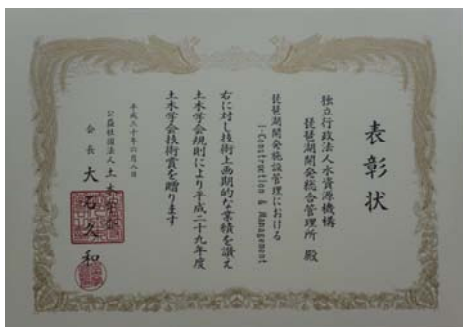 表彰状
独立行政法人水資源機構
琵琶湖開発総合管理所 殿
琵琶湖開発施設管理における
i-Construction & Management
右に対し技術上画期的な業績を讃え
土木学会規則により平成二十九年度
土木学会技術賞を贈ります
平成三十年六月八日
公益社団法人 土木学会
会長 大石久和